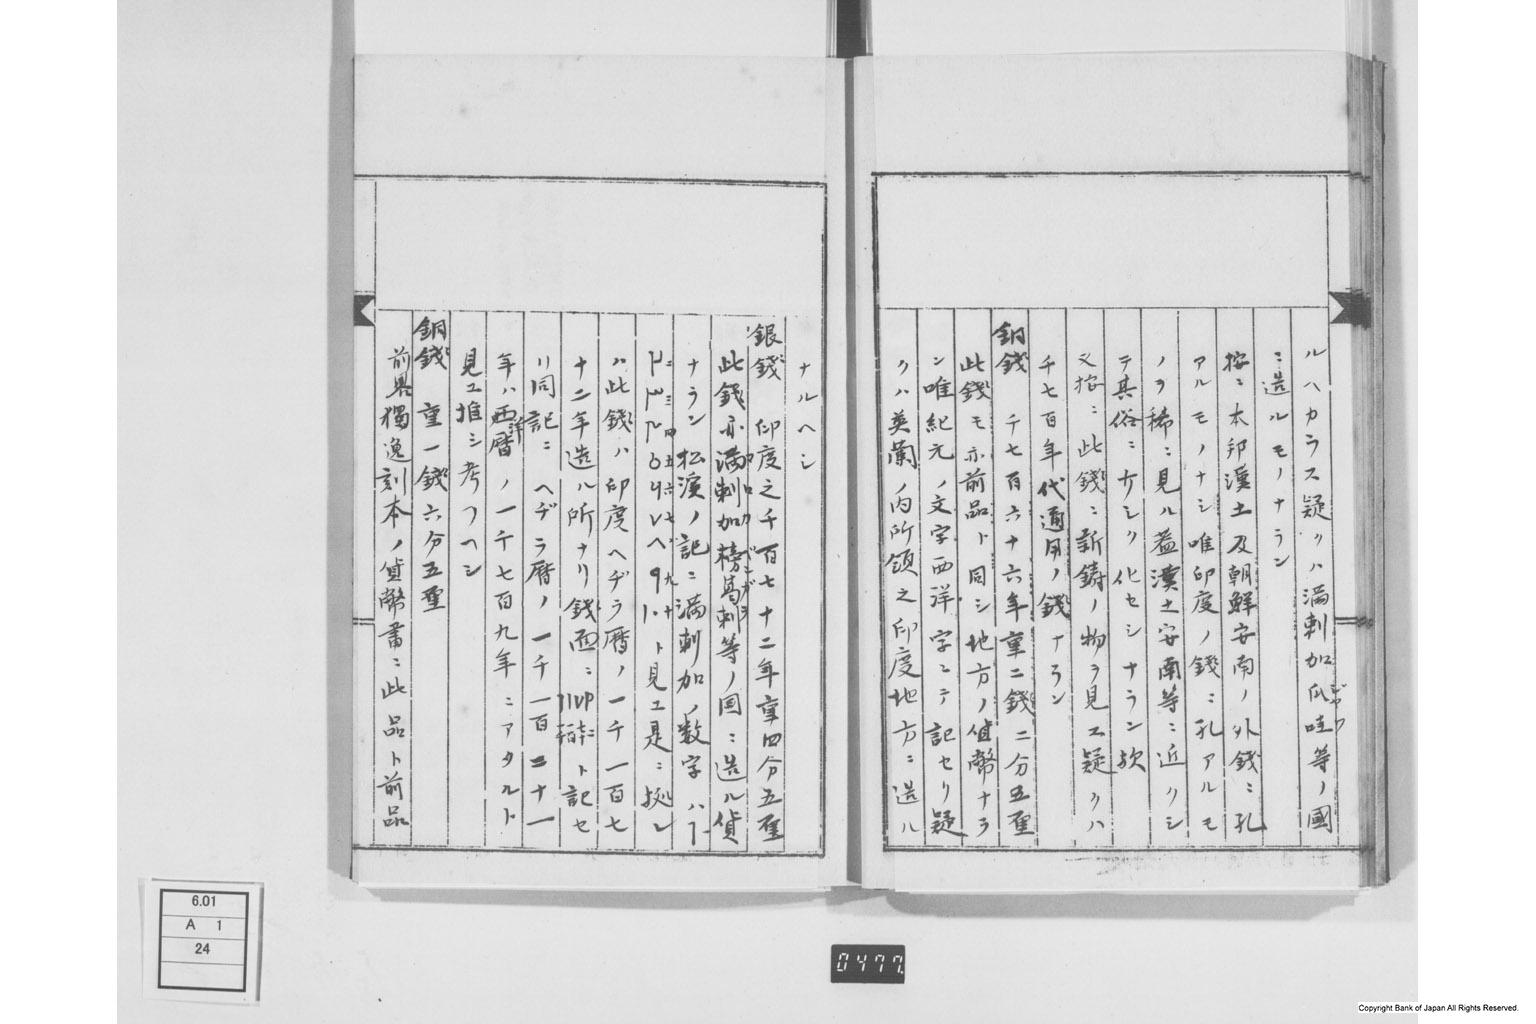 ルヘカラス疑クハ満刺加瓜哇等ノ國
ジヤワ
ニ造ルモノナラン
按ニ本邦漢土及朝鮮安南ノ外錢ニ孔
アルモノナシ唯印度ノ錢ニ孔アルモ
ノヲ稀ニ見ル蓋漢土安南等ニ近クシ
テ其俗ニ化セシナラン歟
又按ニ此錢ニ新鋳ノ物ヲ見ス疑クハ
千七百年代通用ノ錢ナラン
銅錢 千七百六十六年重二錢二分五厘
此錢モ亦前品ト同シ地方ノ貨幣ナラ
ン唯紀元ノ文字西洋字ニテ記セリ疑
クハ英蘭ノ内所領之印度地方ニ造ル
ナルヘシ
銀錢 印度之千百七十二年重四分五厘
此錢亦満刺加榜葛刺等ノ國ニ造ル貨
マロカ ベンガラ
ナラン松濱ノ記ニ満刺加ノ数字ハ
二三四五六七八九十
ト見エ是ニ拠レ
ハ此錢ハ印度ヘヂラ暦ノ一千一百七
十二年造ル所ナリ錢面ニ
ト記セ
リ同記ニヘヂラ暦ノ一千一百二十一
年ハ西洋暦ノ一千七百九年ニアタルト
見エ推シ考フヘシ
銅錢 重一錢六分五厘
前畧獨逸刻本ノ貨幣書ニ此品ト前品
6.01
A 1
24
0477
Copyright Bank of Japan All Rights Reserved.